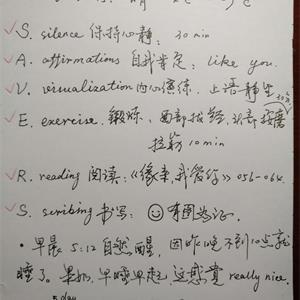 S. silence 保持心静, 30 min
A. affirmations 自我肯定: like you.
V. visualization 内心演练, 上语静坐 20分
E. exercise. 锻炼, 西部拔筋, 头部按摩
拉筋 10 min
R. reading 阅读:《缘来, 我爱你》056-064.
S. scribing 书写: 有图为证.
• 早晨 5:12 自然醒, 因昨晚不到10点就
睡了。果然, 早睡早起 这感觉 really nice.
5 day